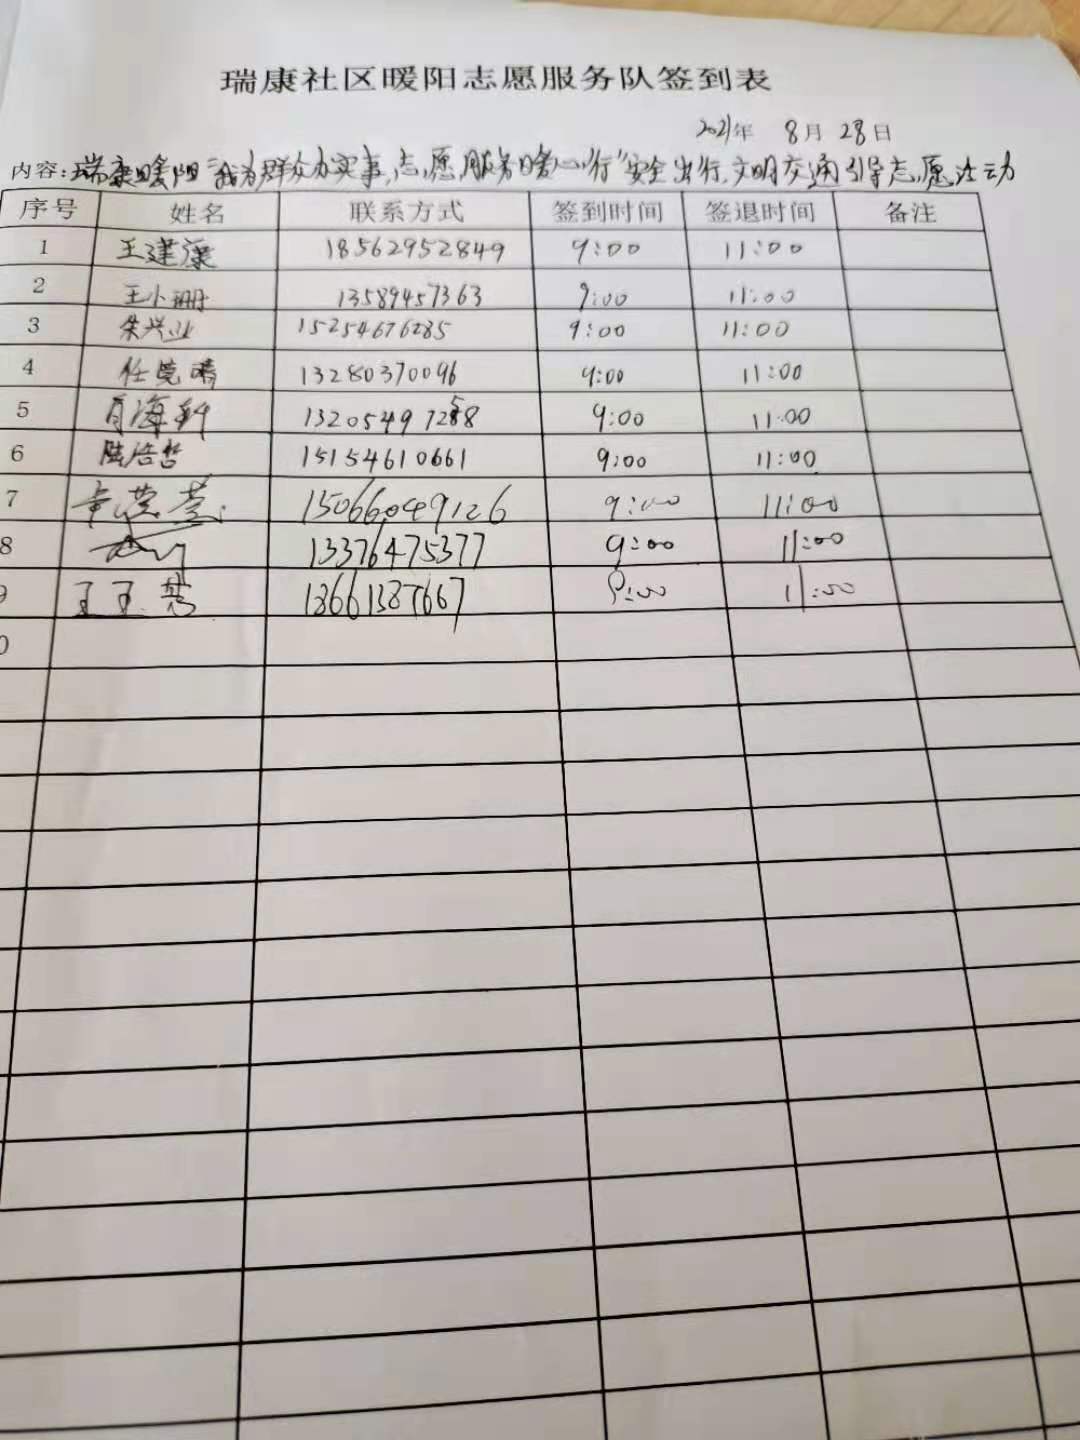 瑞康社区暖阳志愿服务队签到表
2021年 8月 28日
内容:瑞康暖阳“我为群众办实事,志愿服务暖心行”安全出行,文明交通引导志愿活动
序号 姓名 联系方式 签到时间 签退时间 备注
1 王建康 18562952849 9:00 11:00
2 王小珊 13589457363 9:00 11:00
3 朱兴业 15254676285 9:00 11:00
4 任晓晴 13280370096 9:00 11:00
5 肖海科 9:00 11:00
6 陆浩哲 15154610661 9:00 11:00
7 15066049126 9:00 11:00
8 13376475377 9:00 11:00
9 王玉 18661387667 9:00 11:00
0